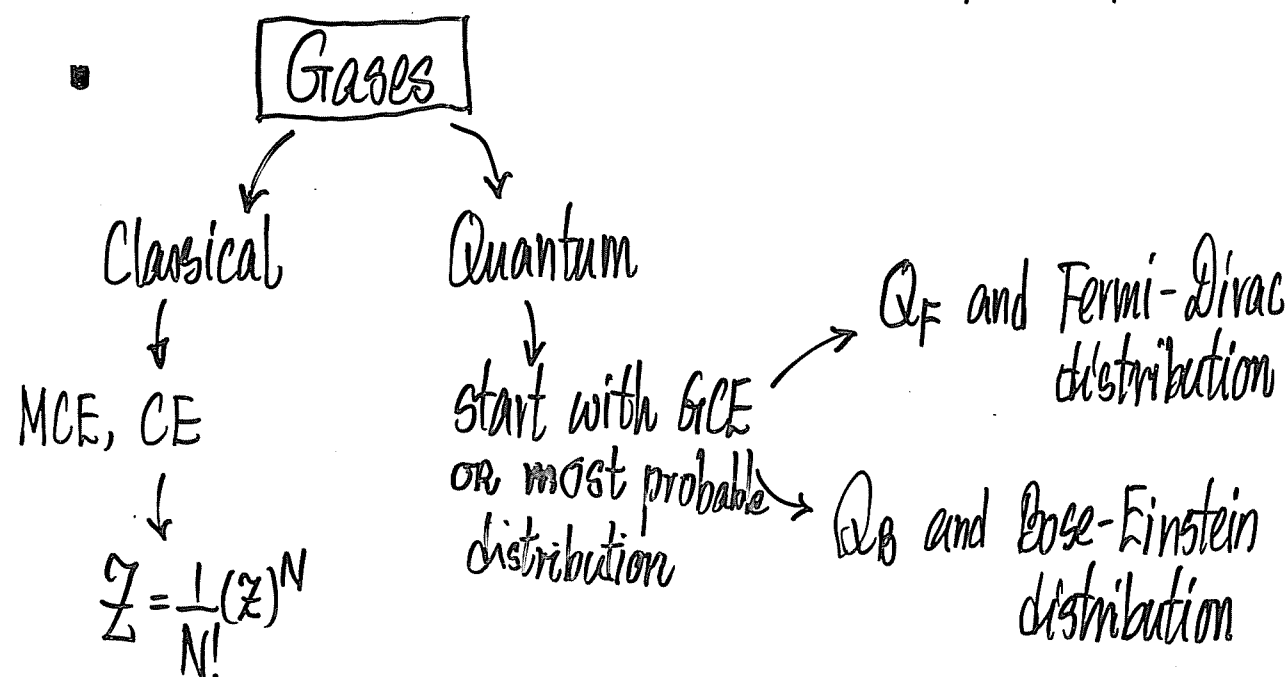 Gases
Classical
Quantum
MCE, CE
start with GCE
or most probable
distribution
Q_F and Fermi-Dirac
distribution
Q_B and Bose-Einstein
distribution
Z = 1/N! (z)^N